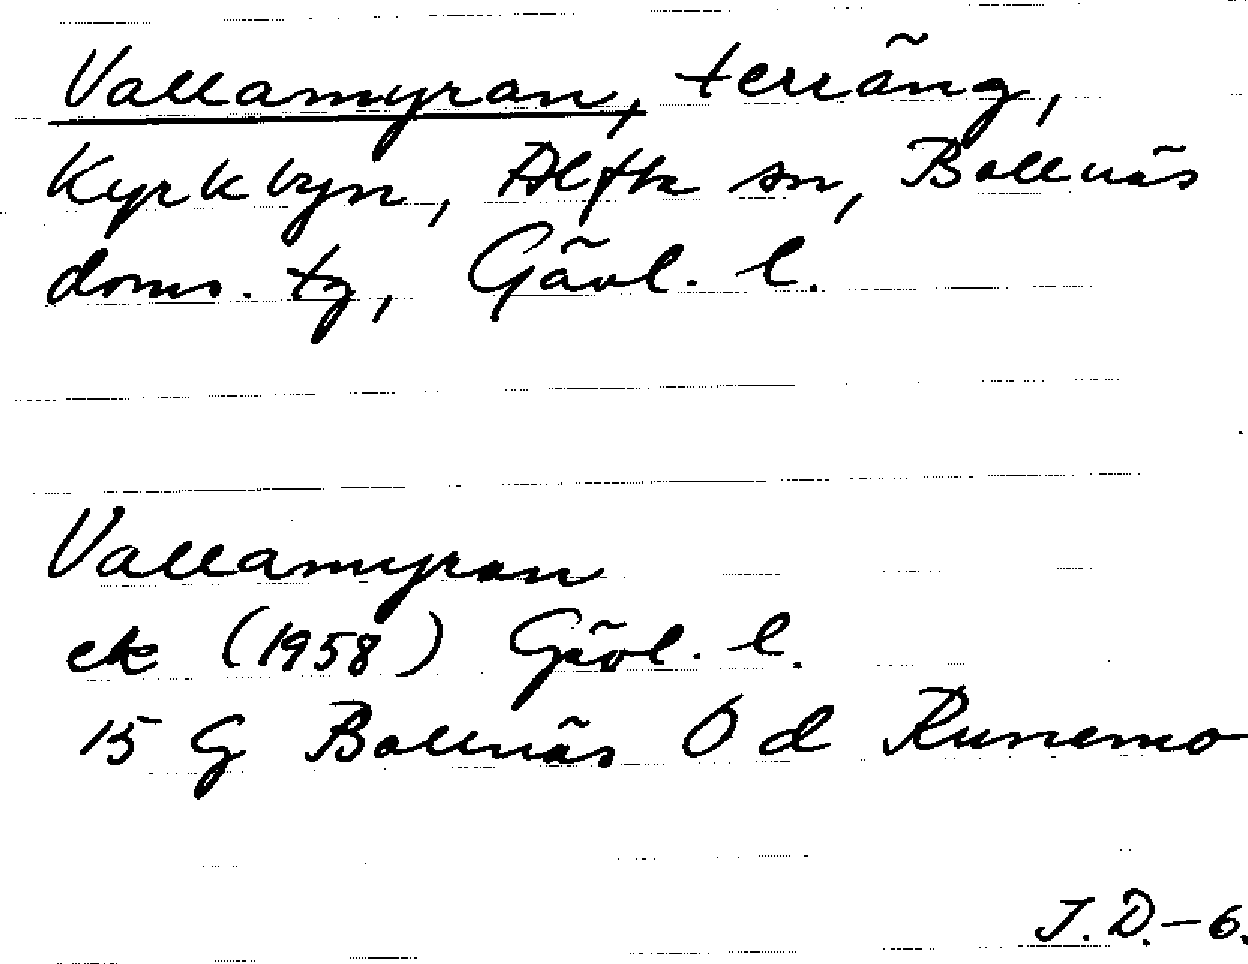 Vallamyran, terräng,
Kyrkbyn, Alfta sn, Bollnäs
doms. tg, Gävl. l.
Vallamyran
ek (1958) Gävl. l.
15 G Bollnäs Ö d Runemo
J.D.-6.